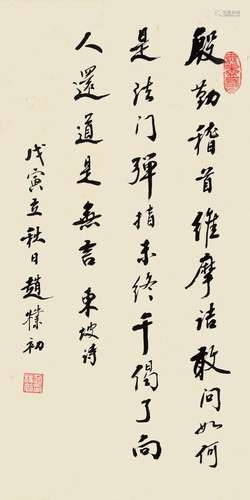 殷勤稽首維摩詰敢问如何
是法门弹指未终千偈了向
人還道是無言 東坡诗
戊寅立秋日趙樸初